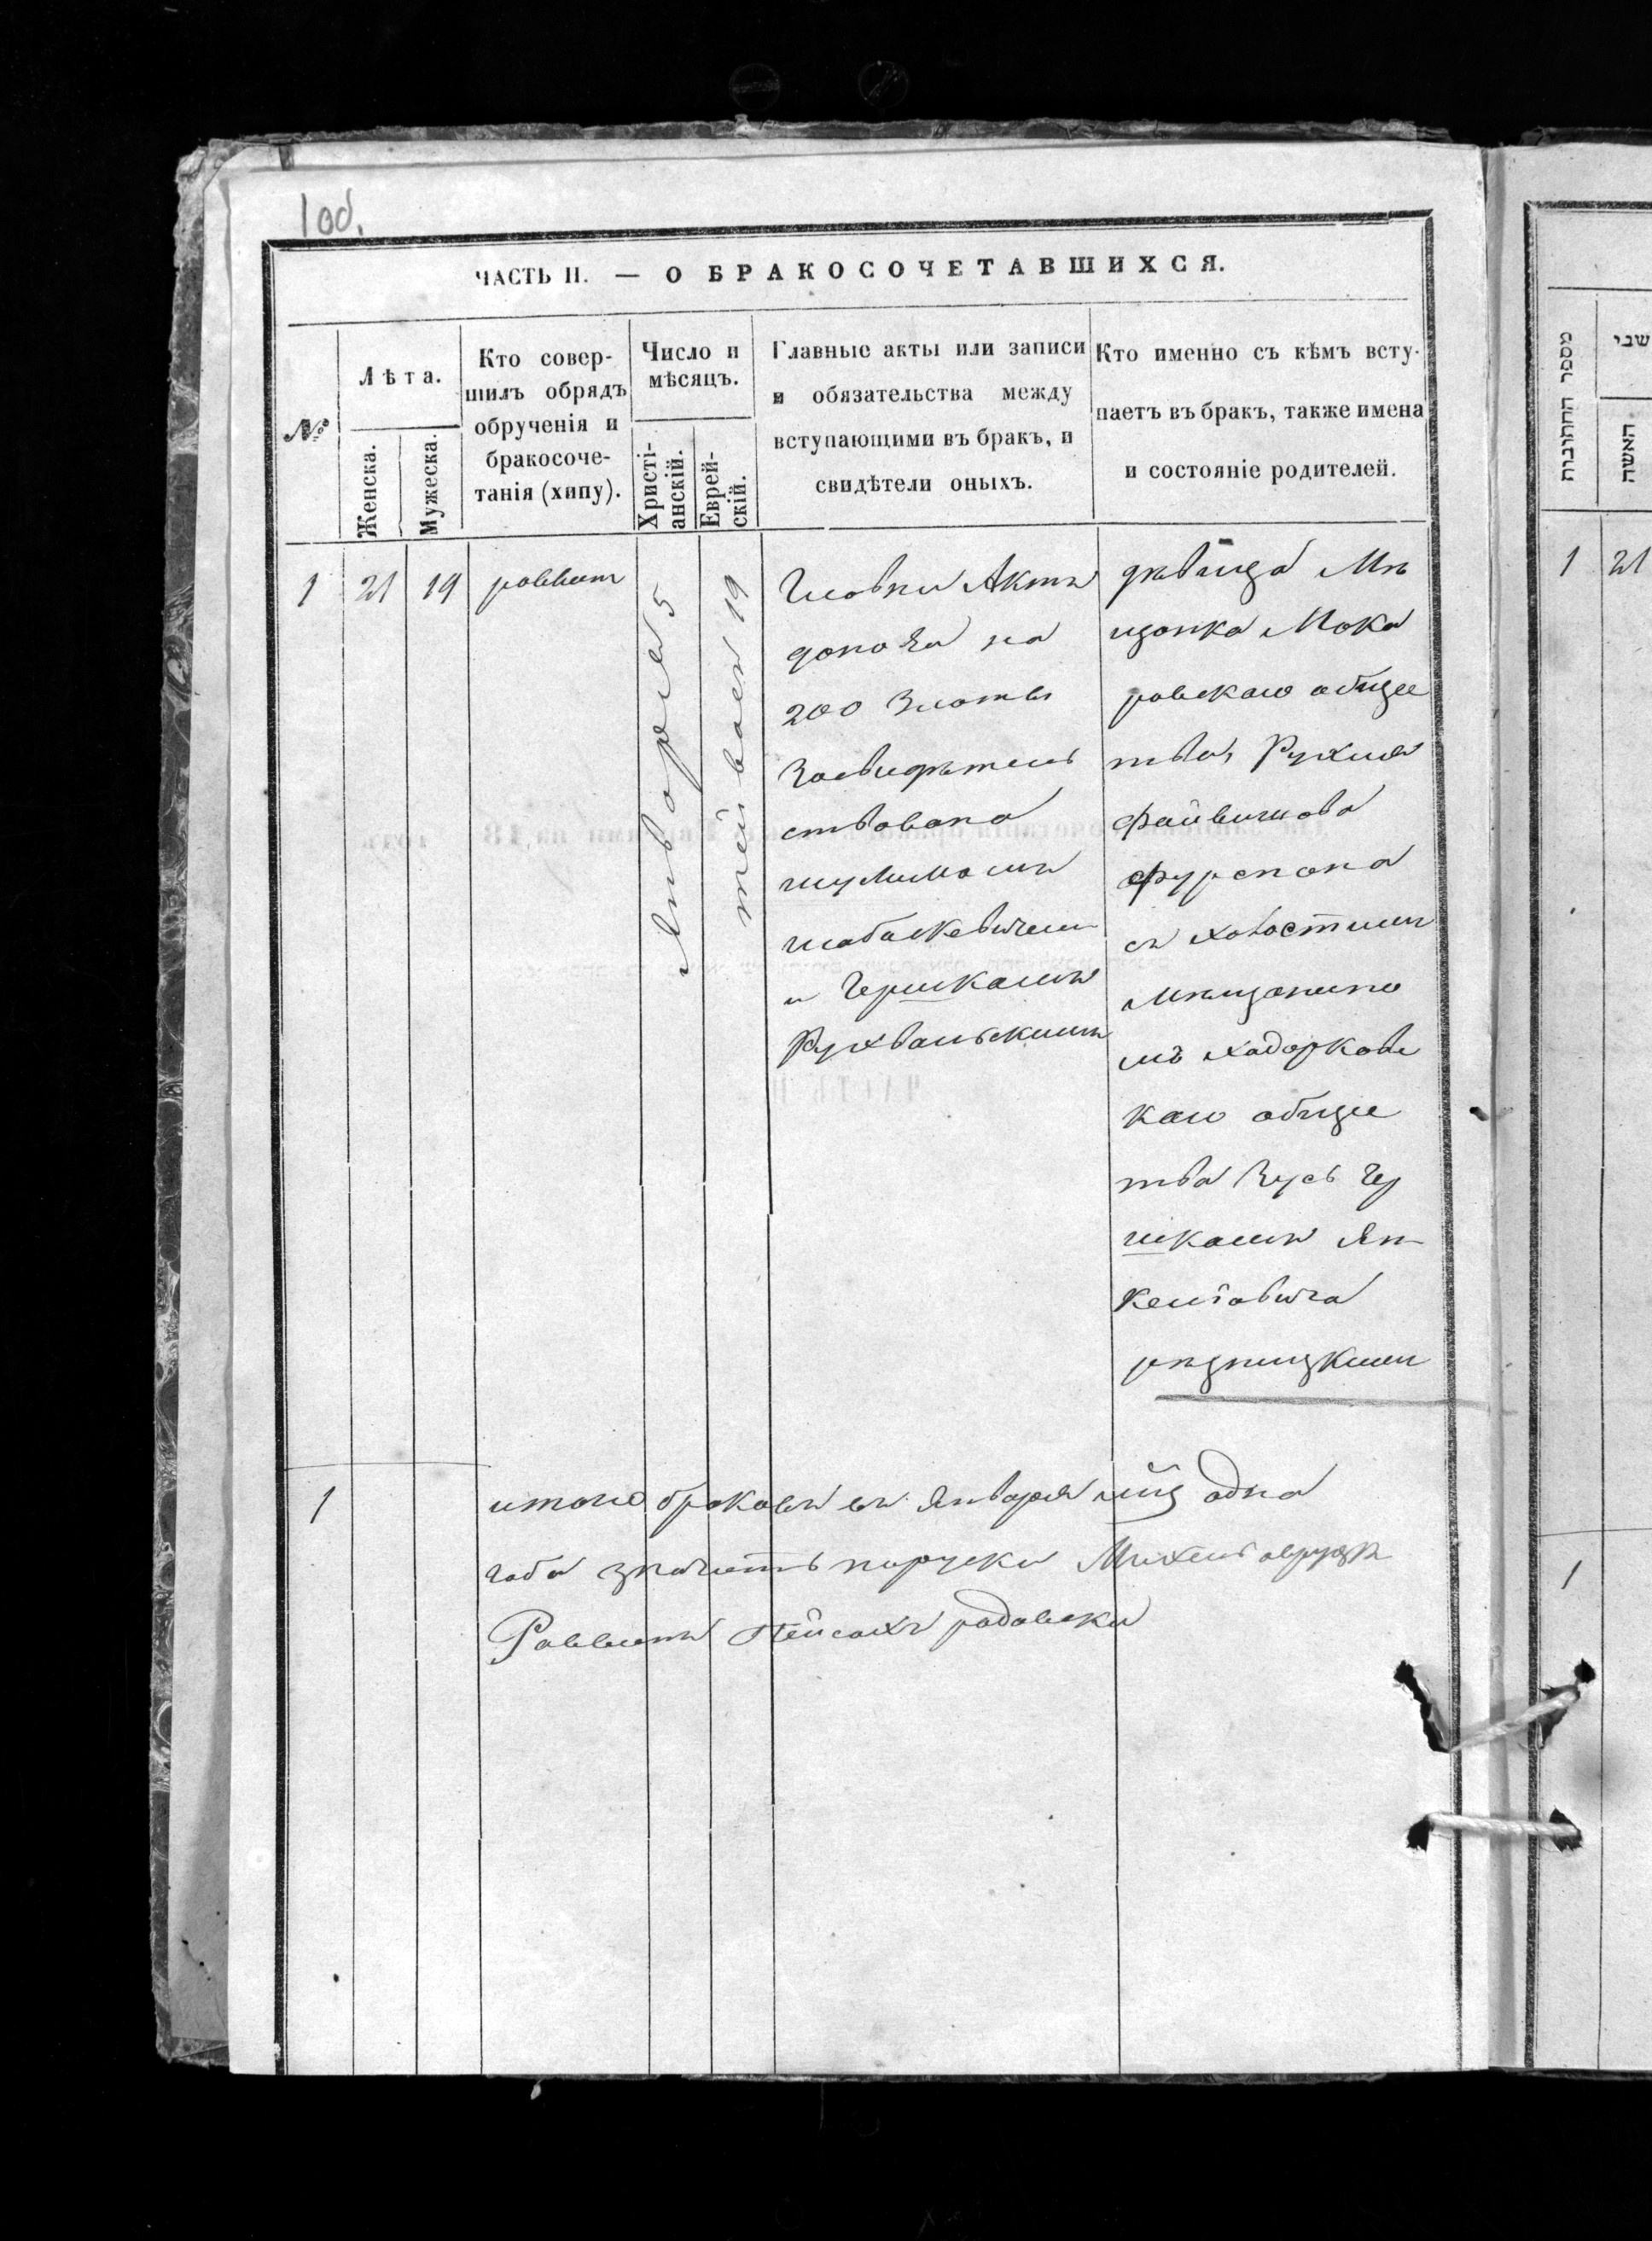 1 об.
ЧАСТЬ II. — О БРАКОСОЧЕТАВШИХСЯ.
№
Лѣта.
Женска.
Мужеска.
Кто совер-
шилъ обрядъ
обрученія и
бракосоче-
танія (хипу).
Число и
мѣсяцъ.
Христі-
анскій.
Еврей-
скій.
Главные акты или записи
и обязательства между
вступающими въ бракъ, и
свидѣтели оныхъ.
Кто именно съ кѣмъ всту-
паетъ въ бракъ, также имена
и состояніе родителей.
1
21
19
раввин
Января 5
19
Акты
на
200 Злоты
Засвидѣтель
ствована
шулимомъ
шабаскевичем
и Гершкамъ
Рухваньскимъ
дѣвица Мѣ
щанка Мока
ровскаго общес
тва, Рухля
Файвишова
Фурмана
съ холостимъ
мѣщанино
мъ ходорковс
каго общес
тва Зусь Гер
шкамъ Ян
келіовича
рѣзницкимъ
1
итого браковъ въ Января мцѣ одна
Михель овруцк
Раввинъ Пейсахъ радовски
מספר החתונות
שני
האשה
1
21
1